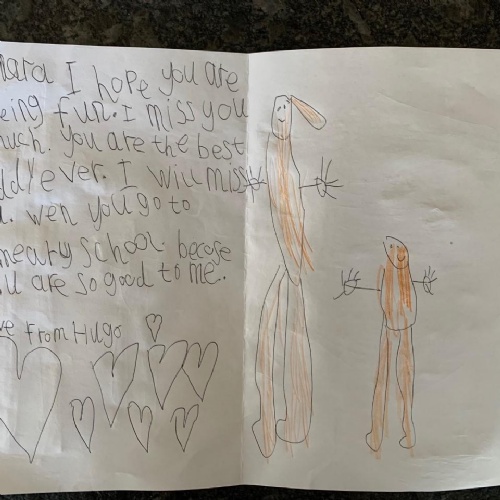 mara I hope you are
eing fun. I miss you
much. you are the best
ddy ever. I will miss
u. wen you go to
meary school. becose
ou are so good to me.
ve from Hugo